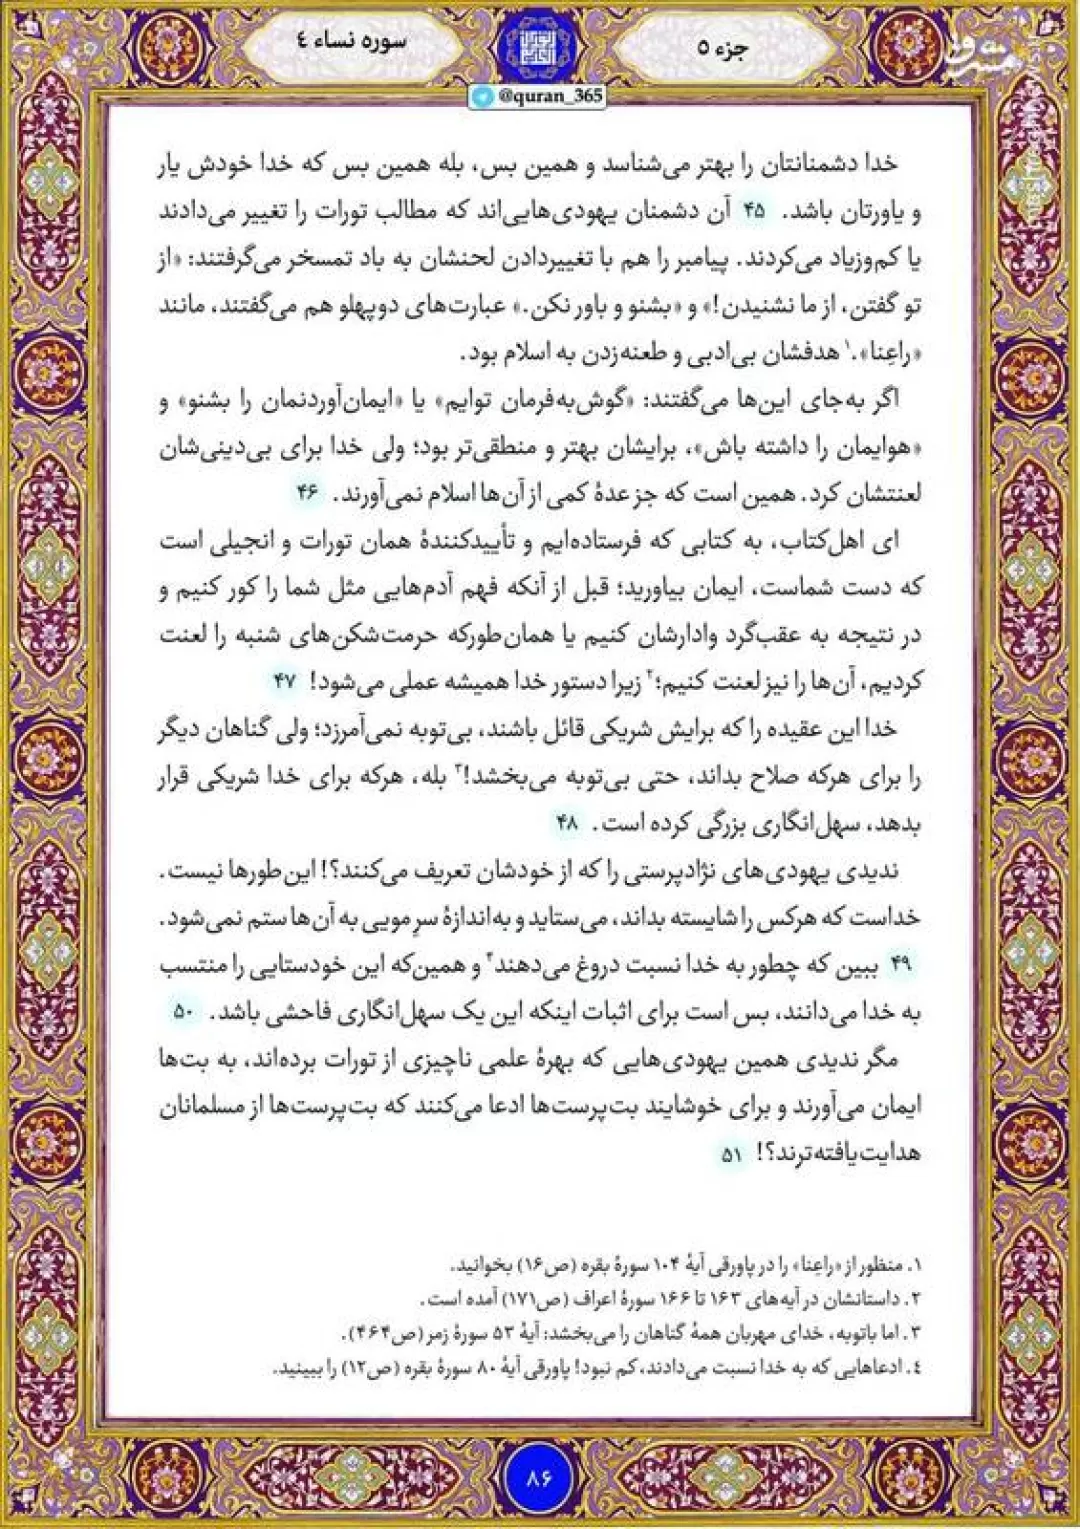 جزء ۵
سوره نساء ٤
مشرق
@quran_365
خدا دشمنانتان را بهتر می‌شناسد و همین بس، بله همین بس که خدا خودش یار
و یاورتان باشد. ۴۵ آن دشمنان یهودی‌هایی‌اند که مطالب تورات را تغییر می‌دادند
یا کم‌وزیاد می‌کردند. پیامبر را هم با تغییردادن لحنشان به باد تمسخر می‌گرفتند: «از
تو گفتن، از ما نشنیدن!» و «بشنو و باور نکن.» عبارت‌های دوپهلو هم می‌گفتند، مانند
«راعِنا».۱ هدفشان بی‌ادبی و طعنه‌زدن به اسلام بود.
اگر به‌جای این‌ها می‌گفتند: «گوش‌به‌فرمان توایم» یا «ایمان‌آوردنمان را بشنو» و
«هوایمان را داشته باش»، برایشان بهتر و منطقی‌تر بود؛ ولی خدا برای بی‌دینی‌شان
لعنتشان کرد. همین است که جز عدهٔ کمی از آن‌ها اسلام نمی‌آورند. ۴۶
ای اهل‌کتاب، به کتابی که فرستاده‌ایم و تأییدکنندهٔ همان تورات و انجیلی است
که دست شماست، ایمان بیاورید؛ قبل از آنکه فهم آدم‌هایی مثل شما را کور کنیم و
در نتیجه به عقب‌گرد وادارشان کنیم یا همان‌طورکه حرمت‌شکن‌های شنبه را لعنت
کردیم، آن‌ها را نیز لعنت کنیم؛۲ زیرا دستور خدا همیشه عملی می‌شود! ۴۷
خدا این عقیده را که برایش شریکی قائل باشند، بی‌توبه نمی‌آمرزد؛ ولی گناهان دیگر
را برای هرکه صلاح بداند، حتی بی‌توبه می‌بخشد!۳ بله، هرکه برای خدا شریکی قرار
بدهد، سهل‌انگاری بزرگی کرده است. ۴۸
ندیدی یهودی‌های نژادپرستی را که از خودشان تعریف می‌کنند؟! این‌طورها نیست.
خداست که هرکس را شایسته بداند، می‌ستاید و به‌اندازهٔ سرِ مویی به آن‌ها ستم نمی‌شود.
۴۹ ببین که چطور به خدا نسبت دروغ می‌دهند۴ و همین‌که این خودستایی را منتسب
به خدا می‌دانند، بس است برای اثبات اینکه این یک سهل‌انگاری فاحشی باشد. ۵۰
مگر ندیدی همین یهودی‌هایی که بهرهٔ علمی ناچیزی از تورات برده‌اند، به بت‌ها
ایمان می‌آورند و برای خوشایند بت‌پرست‌ها ادعا می‌کنند که بت‌پرست‌ها از مسلمانان
هدایت‌یافته‌ترند؟! ۵۱
۱. منظور از «راعِنا» را در پاورقی آیهٔ ۱۰۴ سورهٔ بقره (ص۱۶) بخوانید.
۲. داستانشان در آیه‌های ۱۶۳ تا ۱۶۶ سورهٔ اعراف (ص۱۷۱) آمده است.
۳. اما باتوبه، خدای مهربان همهٔ گناهان را می‌بخشد: آیهٔ ۵۳ سورهٔ زمر (ص۴۶۴).
٤. ادعاهایی که به خدا نسبت می‌دادند، کم نبود! پاورقی آیهٔ ۸۰ سورهٔ بقره (ص۱۲) را ببینید.
۸۶